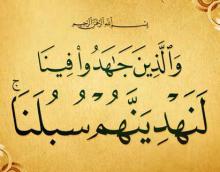 بِسْمِ اللَّهِ الرَّحْمَٰنِ الرَّحِيمِ
وَالَّذِينَ جَاهَدُوا فِينَا
لَنَهْدِيَنَّهُمْ سُبُلَنَا ۚ